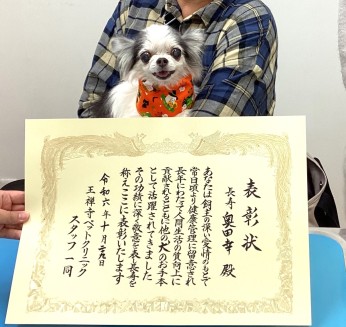 表彰状
長寿 奥田幸 殿
あなたは飼主の深い愛情のもとで
常日頃より健康管理に留意され
長年にわたって人間生活の質向上に
貢献されるとともに他の犬のお手本
として活躍されてきました
その功績に深く敬意を表し長寿を
称えここに表彰いたします
令和六年十月二九日
王禅寺ペットクリニック
スタッフ一同